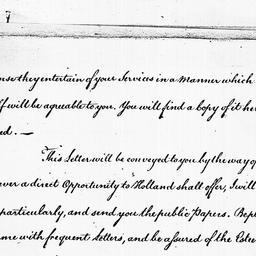 nse they entertain of your Services in a Manner which
ff will be agreable to you. You will find a Copy of it her
ed. —
This Letter will be conveyed to you by the way of
ver a direct Opportunity to Holland shall offer, I will
particularly, and send you the public Papers.
me with frequent Letters, and be assured of the Estee